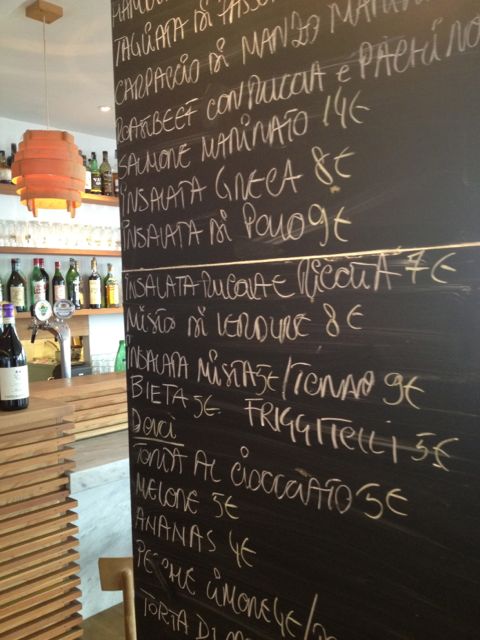 TAGLIATA DI
CARPACCIO DI MANZO
ROASTBEEF CON RUCOLA e PACHINO
SALMONE MARINATO 14€
INSALATA GRECA 8€
INSALATA DI POLLO 9€
INSALATA RUCOLA E RICOTTA 7€
MISTO DI VERDURE 8€
INSALATA MISTA 5€/TONNO 9€
BIETA 5€ FRIGGITELLI 5€
DOLCI
TORTA AL CIOCCOLATO 5€
MELONE 5€
ANANAS 4€
PESCHE LIMONE 4€/
TORTA DI